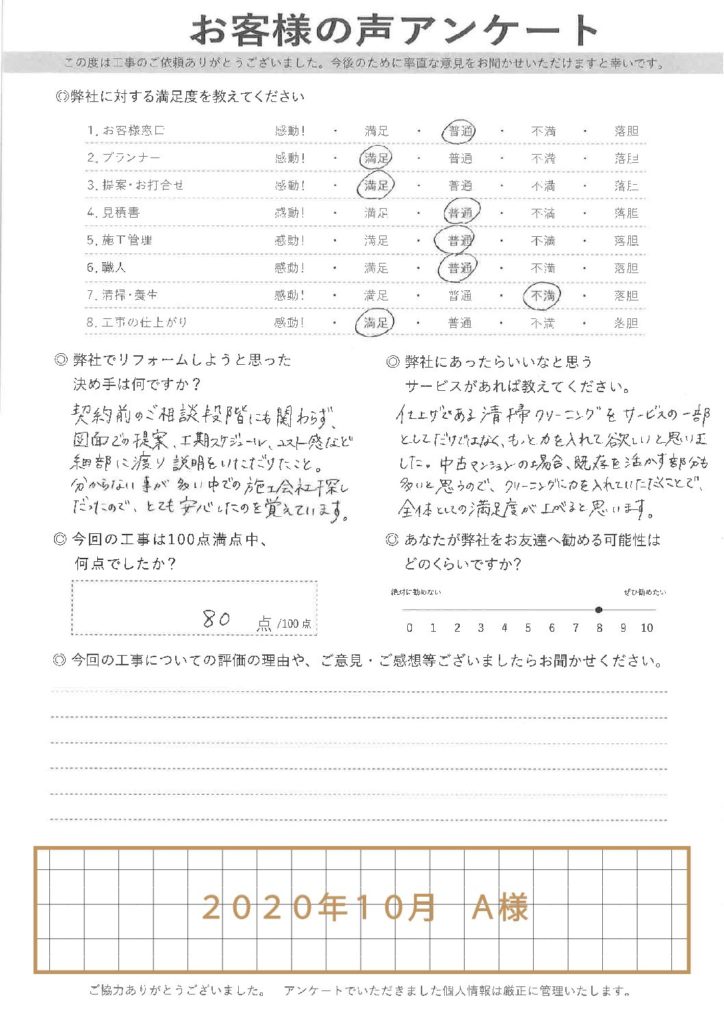 お客様の声アンケート
この度は工事のご依頼ありがとうございました。今後のために率直な意見をお聞かせいただけますと幸いです。
◎弊社に対する満足度を教えてください
1. お客様窓口 感動! ・ 満足 ・ 普通 ・ 不満 ・ 落胆
2. プランナー 感動! ・ 満足 ・ 普通 ・ 不満 ・ 落胆
3. 提案・お打合せ 感動! ・ 満足 ・ 普通 ・ 不満 ・ 落胆
4. 見積書 感動! ・ 満足 ・ 普通 ・ 不満 ・ 落胆
5. 施工管理 感動! ・ 満足 ・ 普通 ・ 不満 ・ 落胆
6. 職人 感動! ・ 満足 ・ 普通 ・ 不満 ・ 落胆
7. 清掃・養生 感動! ・ 満足 ・ 普通 ・ 不満 ・ 落胆
8. 工事の仕上がり 感動! ・ 満足 ・ 普通 ・ 不満 ・ 落胆
◎ 弊社でリフォームしようと思った
決め手は何ですか?
契約前のご相談段階にも関わらず、
図面での提案、工期スケジュール、コスト感など
細部に渡り説明をいただけたこと。
分からない事が多い中での施工会社探し
だったので、とても安心したのを覚えています。
◎ 弊社にあったらいいなと思う
サービスがあれば教えてください。
仕上げである清掃クリーニングをサービスの一部
としてだけではなく、もっと力を入れて欲しいと思いま
した。中古マンションの場合、既存を活かす部分も
多いと思うので、クリーニングに力を入れていただくことで、
全体としての満足度が上がると思います。
◎ 今回の工事は100点満点中、
何点でしたか?
80 点 /100点
◎ あなたが弊社をお友達へ勧める可能性は
どのくらいですか?
絶対に勧めない ぜひ勧めたい
0 1 2 3 4 5 6 7 8 9 10
◎ 今回の工事についての評価の理由や、ご意見・ご感想等ございましたらお聞かせください。
2020年10月 A様
ご協力ありがとうございました。 アンケートでいただきました個人情報は厳正に管理いたします。